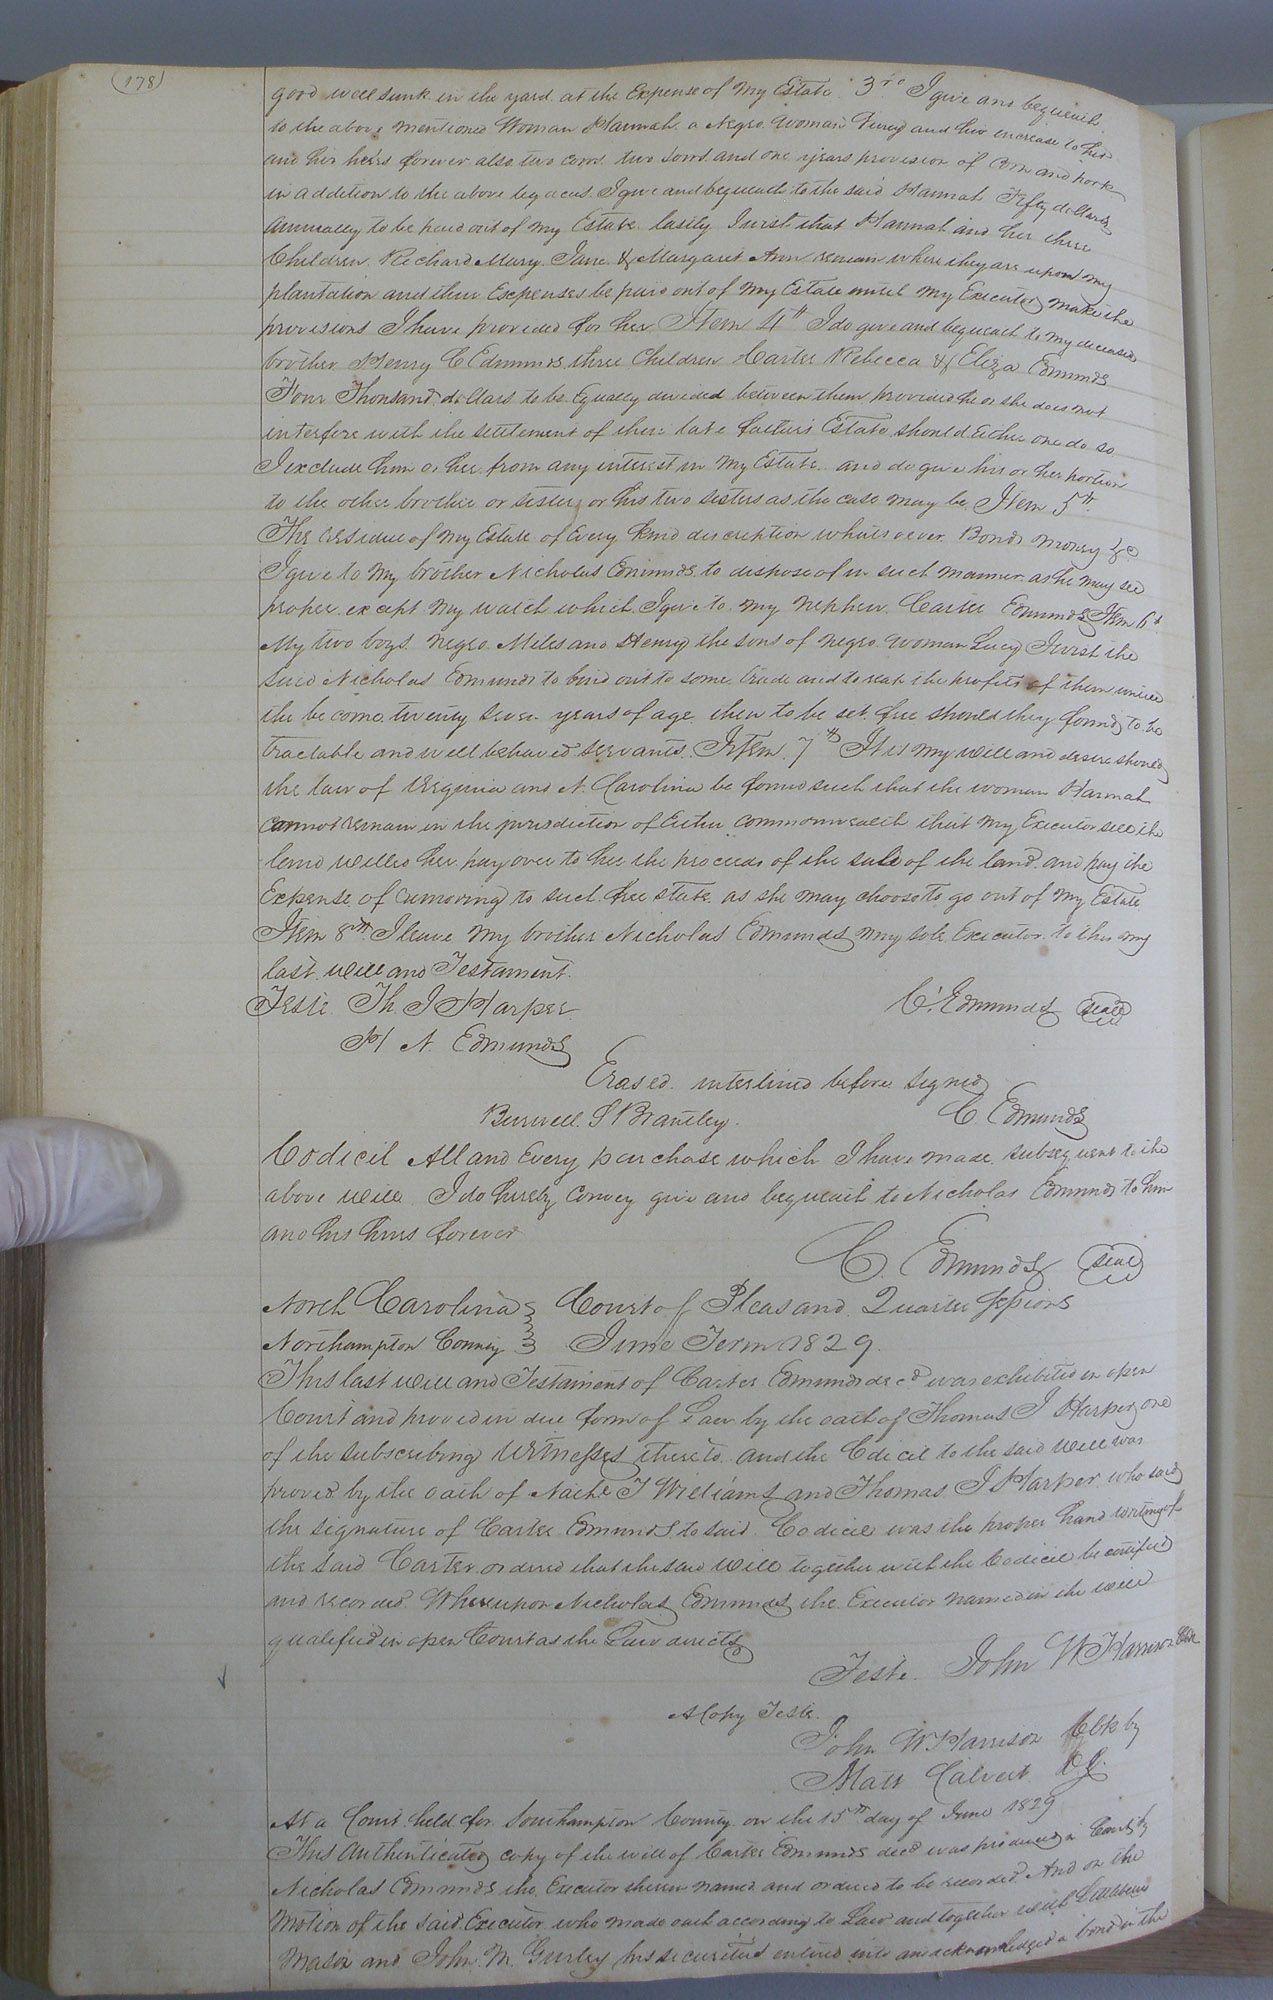 (178)
good well sunk in the yard at the Expense of my Estate. 3rd I give and bequeath
to the above mentioned Woman Hannah a Negro Woman and her increase to her
and her heirs forever also two cows two sows and one years provision of Corn and pork
in addition to the above legacies I give and bequeath to the said Hannah Fifty dollars
annually to be paid out of my Estate lastly I wish that Hannah and her three
Children Richard Mary Jane & Margaret Ann remain where they are upon my
plantation and their Expenses be paid out of my Estate until my Executor make the
provisions I have provided for her Item 4th I do give and bequeath to my deceased
brother Henry C Edmunds three Children Carter Rebecca & Eliza Edmunds
Four Thousand dollars to be Equally divided between them provided he or she does not
interfere with the settlement of their late fathers Estate should Either one do so
I exclude him or her from any interest in my Estate and do give his or her portion
to the other brother or sister or his two sisters as the case may be Item 5th
The residue of my Estate of Every kind discription whatsoever Bonds money &c
I give to my brother Nicholas Edmunds to dispose of in such manner as he may see
proper except my watch which I give to my nephew Carter Edmunds Item 6th
My two boys negro Miles and Henry the sons of negro woman Lucy I wish the
said Nicholas Edmunds to bind out to some trade and to reap the profits of them untill
the become twenty seven years of age then to be set free should they found to be
tractable and well behaved servants. Item 7th It is my will and desire should
the law of Virginia and N. Carolina be found such that the woman Hannah
cannot remain in the jurisdiction of Either commonwealth that my Executor sell the
land willed her pay over to her the proceeds of the sale of the land and pay the
Expense of removing to such free state as she may choose to go out of my Estate
Item 8th I leave my brother Nicholas Edmunds my sole Executor to this my
last will and Testament.
Teste Th. J Harper C. Edmunds seal
H N. Edmunds
Erased interlined before signed
Burwell S Brantley. C. Edmunds
Codicil All and Every purchase which I have made subsequent to the
above will I do hereby convey give and bequeath to Nicholas Edmunds to him
and his heirs forever
C. Edmunds seal
North Carolina Court of Pleas and Quarter Sessions
Northampton County June Term 1829.
This last will and Testament of Carter Edmunds decd was exhibited in open
Court and proved in due form of Law by the oath of Thomas J Harper one
of the subscribing Witnesses thereto and the Codicil to the said will was
proved by the oath of T Williams and Thomas J Harper who said
the signature of Carter Edmunds to said Codicil was the proper hand writing of
the said Carter ordered that the said Will together with the Codicil be certified
and recorded. Whereupon Nicholas Edmunds the Executor named in the will
qualified in open Court as the Law directs
Teste. John W Harrison Clk
A Copy Teste.
John W. Harrison Clk by
Matt Calvert
At a Court held for Southampton County on the 15th day of June 1829
This Authenticated copy of the will of Carter Edmunds decd was produced in Court by
Nicholas Edmunds the Executor therein named and ordered to be recorded And on the
motion of the said Executor who made oath according to Law and together with
Mason and John M. Gurley his securities entered into and acknowledged a bond in the